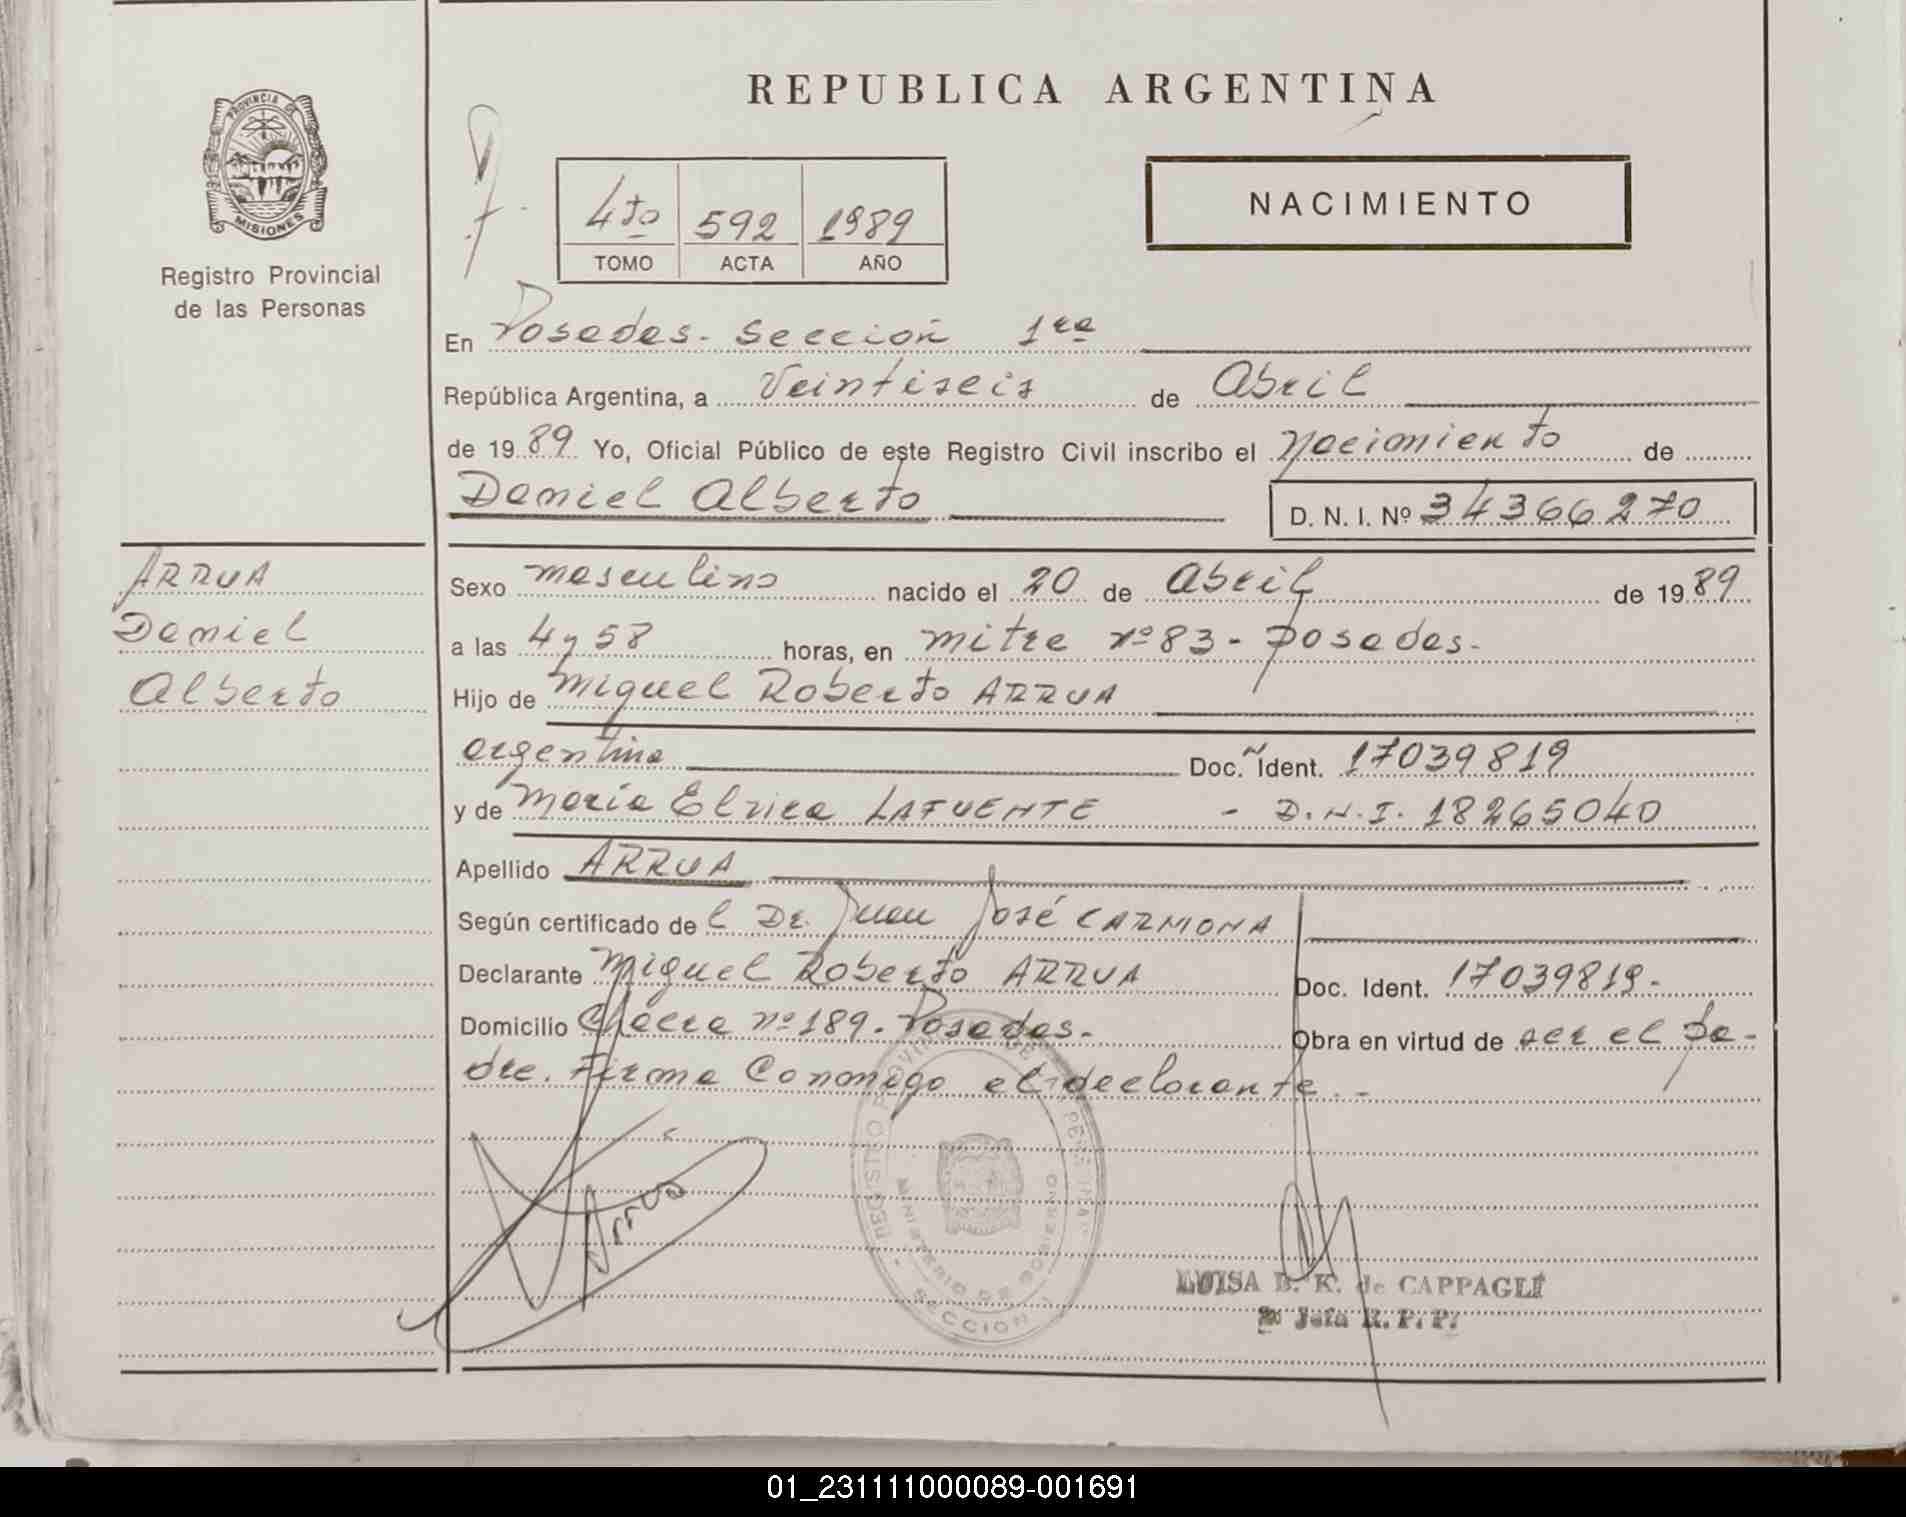 REPUBLICA ARGENTINA
PROVINCIA DE
MISIONES
Registro Provincial
de las Personas
4to 592 1989
TOMO ACTA AÑO
NACIMIENTO
En Posadas - Sección 1ra
República Argentina, a Veintiseis de Abril
de 1989 Yo, Oficial Público de este Registro Civil inscribo el Nacimiento de
Daniel Alberto
D. N. I. Nº 34366270
ARRUA
Daniel
Alberto
Sexo masculino nacido el 20 de Abril de 1989
a las 4 y 58 horas, en mitre nº 83 - Posadas -
Hijo de Miguel Roberto ARRUA
argentina Doc. Ident. 17039819
y de María Elvira LAFUENTE - D.N.I. 18265040
Apellido ARRUA
Según certificado del Dr. Juan José CARMONA
Declarante Miguel Roberto ARRUA Doc. Ident. 17039819.
Domicilio Chacra nº 189. Posadas. Obra en virtud de ser el pa-
dre. Firma Conmigo el declarante. -
Arrua
REGISTRO PROVINCIAL DE LAS PERSONAS
MINISTERIO DE GOBIERNO
SECCION 1
LUISA B. K. de CAPPAGLI
Jefa R. P. P.
01_231111000089-001691